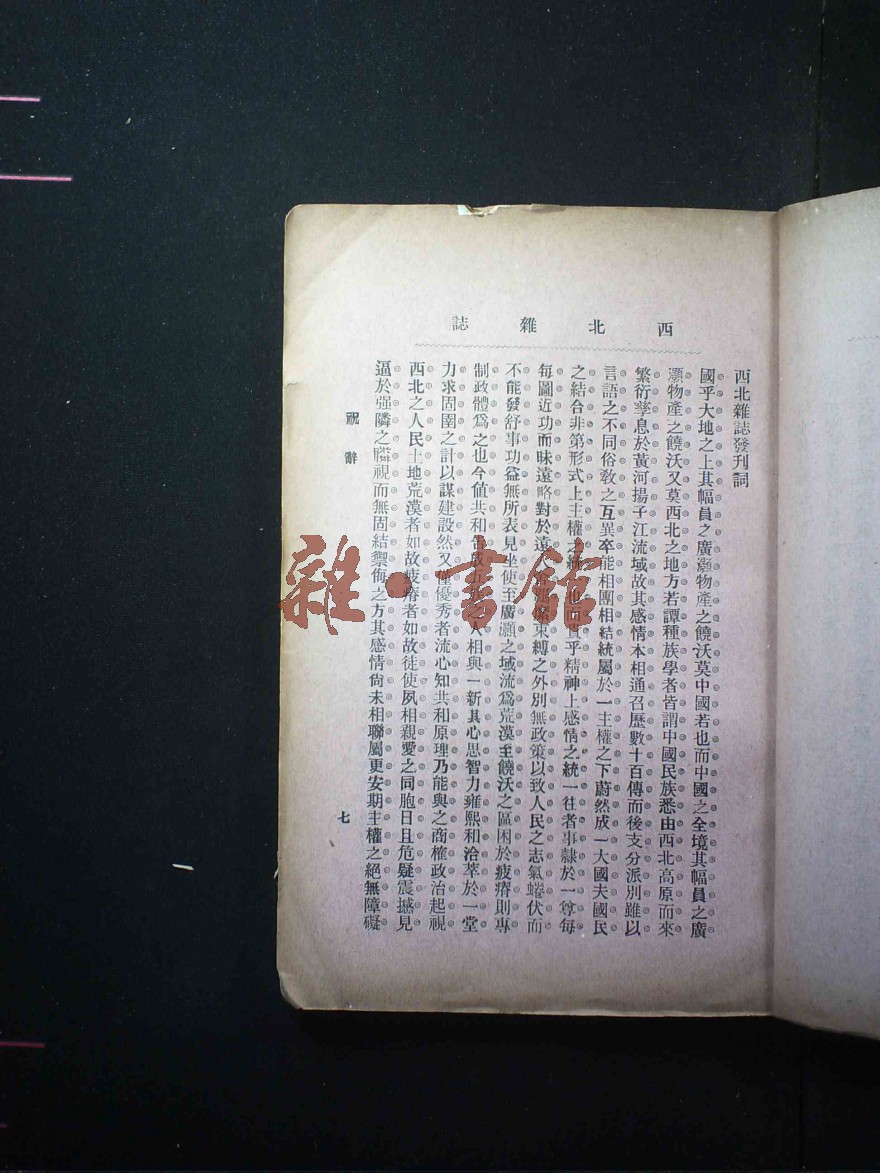 西北雜誌
西北雜誌發刊詞
國乎大地之上其幅員之廣灝物產之饒沃莫中國若也而中國之全境其幅員之廣
灝物產之饒沃又莫西北之地方若譚種族學者皆謂中國民族悉由西北高原而來
繁衍孳息於黃河揚子江流域故其感情本相通召歷數十百傳而後支分派別雖以
言語之不同俗敎之互異卒能相團相結統屬於一主權之下蔚然成一大國夫國民
之結合非第形式上主權之統一也而貴乎精神上感情之統一往者事隸於一尊每
每圖近功而昧遠略對於遠束縛之外別無政策以致人民之志氣蜷伏而
不能發舒事功益無所表見坐使至廣灝之域流爲荒漠至饒沃之區困於疲瘠則專
制政體爲之也今値共和告成五人相與一新其心思智力雍熙和洽萃於一堂
力求固圉之計以謀建設然又僅優秀者流心知共和原理乃能與之商榷政治起視
西北之人民土地荒漠者如故疲瘠者如故徒使夙相親愛之同胞日且危疑震撼見
逼於强隣之瞵視而無固結禦侮之方其感情尙未相聯屬更安期主權之絕無障礙
祝辭
七
雜·書館